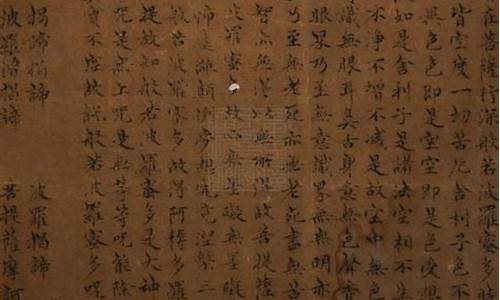 在菩薩行深般若波羅蜜多時
皆空度一切苦厄舍利子色不
異色色即是空空即是色受想
如是舍利子是諸法空相不生
不淨不增不減是故空中無色
識無眼耳鼻舌身意無色聲香
眼界乃至無意識界無無明亦
乃至無老死亦無老死盡無苦
智亦無得以無所得故菩提薩
波羅蜜多故心無罣礙無罣礙
怖遠離顛倒夢想究竟涅槃三
般若波羅蜜多故得阿耨多羅
提故知般若波羅蜜多是大神
咒是無上咒是無等等咒能除
實不虛故說般若波羅蜜多咒
揭諦揭諦 波羅揭諦
波羅僧揭諦 菩提薩摩訶